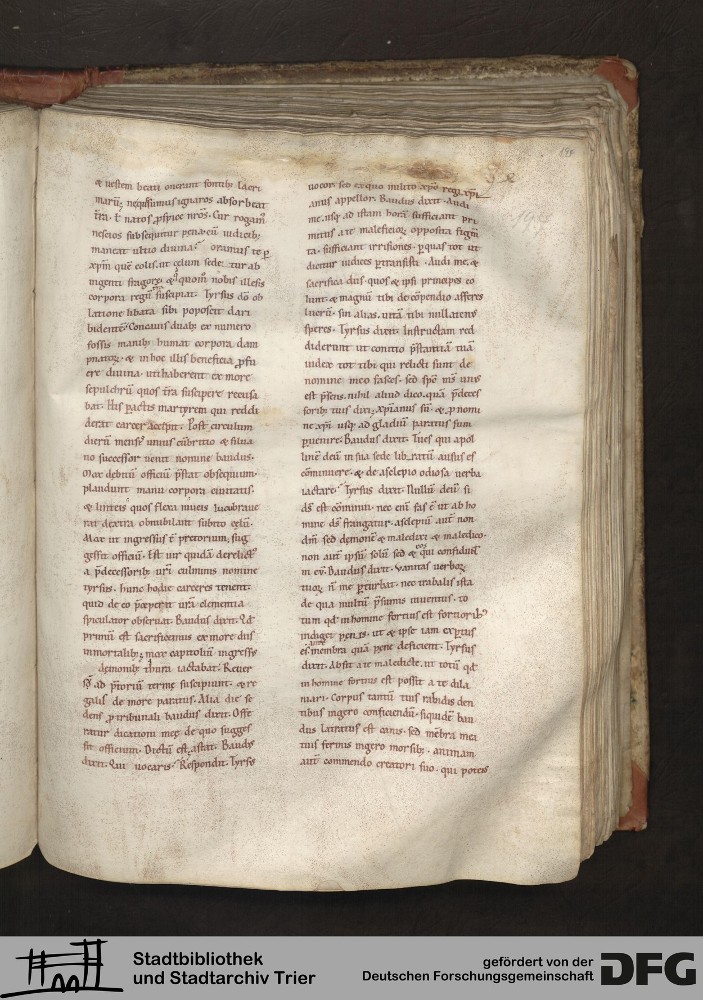 & uestem beati onerant fontib; lacri
maru; neqissimus ignaros absorbeat
tr̄a. & natos p̄spice nr̄os. Cur rogam̄
nescios subsequitur pena. cū iudicib;
maneat ultio diuina? oramus te ꝑ
xp̄m quē colis. ut celum sede; turab
corpora regū suscipiat. Tyrsus dō ob
latione libata sibi poposcit dari
bidentē. Concauis duab; ex numero
fossis manib; humat corpora dam
& in hoc illis beneficia
ere diuina. ut haberent ex more
sepulchrū quos tr̄a suscipere recusa
bat. His ꝑactis martyrem qui reddi
derat carcer accepit. Post circulum
dierū mensis unius
no successor uenit nomine baudus.
Mox debitū officiū p̄stat obsequium.
plaudunt manu corpora ciuitatis.
& linteis quos flexa
rat dextra obnubilant subito celū.
Mox ut ingressus ē pretorium, sug
gessit officiū. Est uir quidā derelict᷒
a p̄decessorib; ur̄i culminis nomine
tyrsus. hunc hodie carceres tenent.
quid de eo p̄ceperit ur̄a clementia
spiculator obseruat. Baudus dixit. Qd̄
primū est sacrificemus ex more diis
inmortalib; mox capitoliū ingressus
demonib; thura iactabat. Reuer
sus ad p̄toriū terme suscipiunt. & re
galis de more paratus. Alia die se
dens ꝓ tribunali baudus dixit. Offe
ratur dicationi meę de quo sugges
sit officium. Dictū est, astat. Baudus
dixit. Qui uocaris? Respondit. Tyrsus
uocor. sed ex quo milito xp̄o regi. xp̄i
anus appellor. Baudus dixit. Audi
me. usq; ad istam horā sufficiant pri
mitus a te maleficioꝝ opposita figm̄
ta. sufficiant irrisiones. ꝑ quas tot ut
dicitur iudices ꝑtransisti. Audi me. &
sacrifica diis. quos & ipsi principes co
lunt. & magnū tibi de cōpendio afferes
lucrū. sin alias. uitā tibi nullatenus
speres. Tyrsus dixit. Instructam red
diderunt ut conitio p̄stantiā tuā
iudex tot tibi qui relicti sunt de
nomine meo fasces. sed
est p̄sens. nihil aliud dico. quā p̄deces
sorib; tuis dixi. xp̄ianus sū. & ꝓ nomi
ne xp̄i usq; ad gladiū paratus sum
ꝑuenire. Baudus dixit. Tu es qui apol
linē deū in sua sede ausus es
cōminuere. & de asclepio odiosa uerba
iactare? Tyrsus dixit. Nullū deū si
ds̄ est cōminui. nec enī fas ē ut ab ho
mine ds̄ frangatur. asclepiū aut̄ non
dm̄ sed demonē & maledixi & maledico.
non aut̄ ipsū solū sed & eos qui confidunt
in eū. Baudus dixit. Vanitas uerboꝝ
tuoꝝ n̄ me ꝑturbat. nec trabalis ista
de qua multū p̄sumis iuuentus. to
tum qd̄ in homine fortius est fortiorib᷒
indiget penis. ut & ipse iam exptus
es. membra quā pene deficient. Tyrsus
dixit. Absit a te maledicte. ut totū qd̄
in homine fortius est possit a te dila
niari. Corpus tantū tuis rabidis den
tibus ingero conficiendū. siquidē bau
dus latratus est canis. sed mēbra mea
tuis feruus ingero morsib;. animam
aut̄ commendo creatori suo. qui poteis
Stadtbibliothek
und Stadtarchiv Trier
gefördert von der
Deutschen Forschungsgemeinschaft
DFG